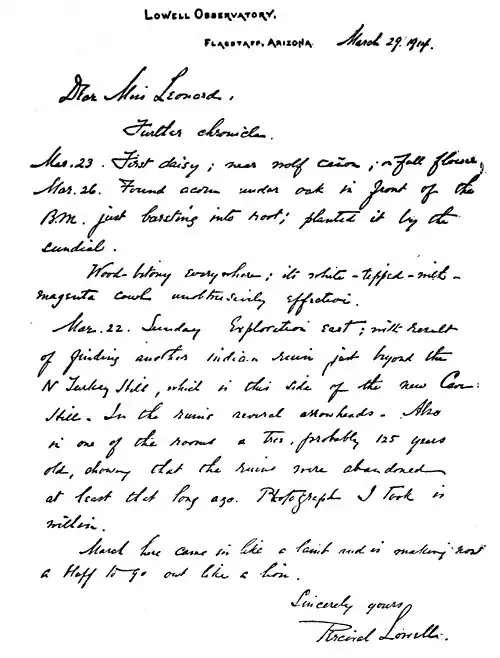 LOWELL OBSERVATORY,
FLAGSTAFF, ARIZONA. March 29. 1914.
Dear Miss Leonard,
Further chronicle.
Mar. 23. First daisy; near wolf cañon; in full flower,
Mar. 26. Found acorn under oak in front of the
B.M. just bursting into root; planted it by the
sundial.
Wood-betony everywhere; its white-tipped-with-
magenta cowls unobtrusively effective.
Mar. 22. Sunday Exploration east; with result
of finding another indian ruin just beyond the
N Turkey Hill, which is this side of the new Cave
Hill. In the ruins several arrowheads. Also
in one of the rooms a tree, probably 125 years
old, showing that the ruins were abandoned
at least that long ago. Photograph I took is
within.
March here came in like a lamb and is making
a to go out like a lion.
Sincerely yours,
Percival Lowell.